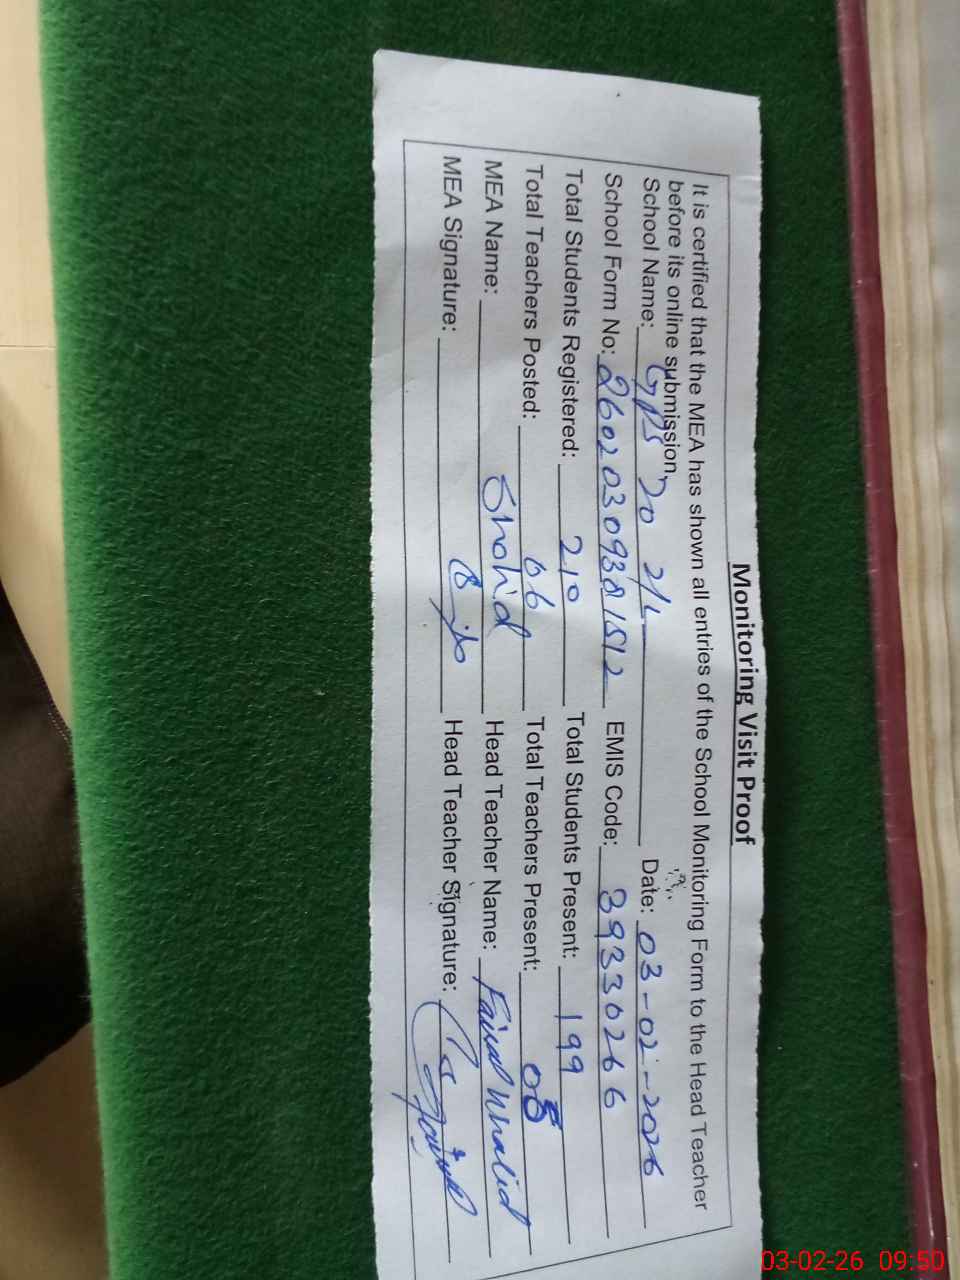 Monitoring Visit Proof
It is certified that the MEA has shown all entries of the School Monitoring Form to the Head Teacher
before its online submission.
School Name: GPS 20 2/L Date: 03-02-2026
School Form No: 26020309381512 EMIS Code: 39330266
Total Students Registered: 210 Total Students Present: 199
Total Teachers Posted: 06 Total Teachers Present:
MEA Name: Shahid Head Teacher Name: Faisal Khalid
MEA Signature: Head Teacher Signature:
03-02-26 09:50